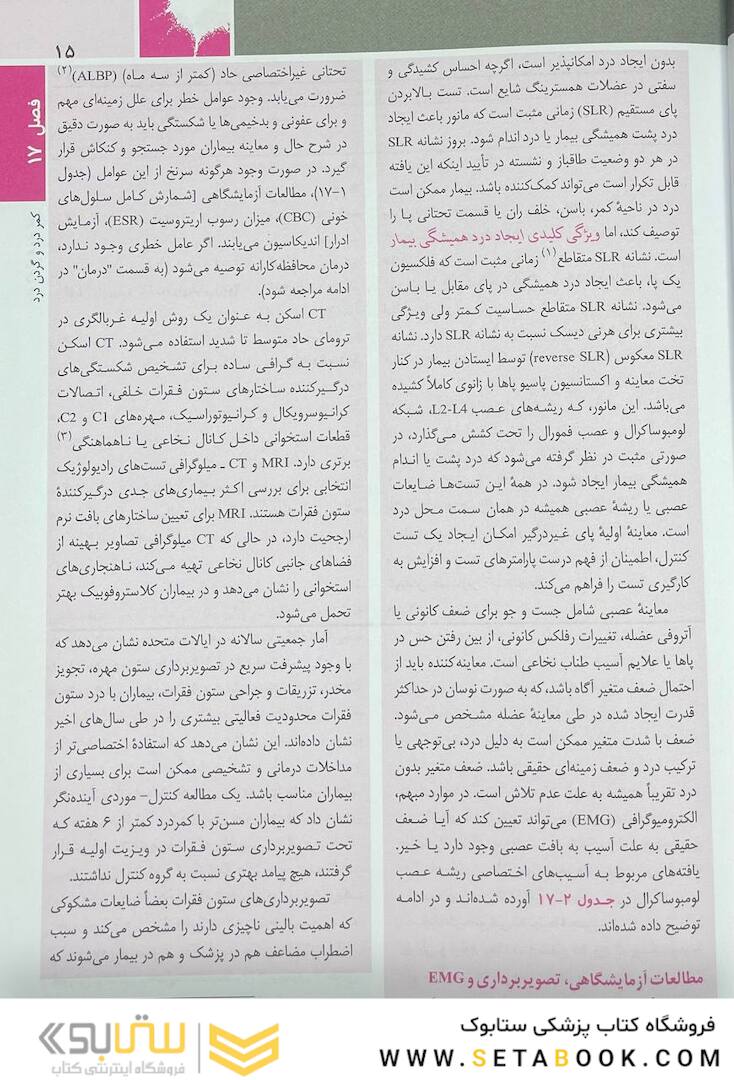 ۱۵
فصل ۱۷
کمر درد و گردن درد
بدون ایجاد درد امکانپذیر است، اگرچه احساس کشیدگی و
سفتی در عضلات همسترینگ شایع است. تست بالابردن
پای مستقیم (SLR) زمانی مثبت است که مانور باعث ایجاد
درد پشت همیشگی بیمار یا درد اندام شود. بروز نشانه SLR
در هر دو وضعیت طاقباز و نشسته در تأیید اینکه این یافته
قابل تکرار است می‌تواند کمک‌کننده باشد. بیمار ممکن است
درد در ناحیهٔ کمر، باسن، خلف ران یا قسمت تحتانی پا را
توصیف کند، اما ویژگی کلیدی ایجاد درد همیشگی بیمار
است. نشانه SLR متقاطع(۱) زمانی مثبت است که فلکسیون
یک پا، باعث ایجاد درد همیشگی در پای مقابل یا باسن
می‌شود. نشانه SLR متقاطع حساسیت کمتر ولی ویژگی
بیشتری برای هرنی دیسک نسبت به نشانه SLR دارد. نشانه
SLR معکوس (reverse SLR) توسط ایستادن بیمار در کنار
تخت معاینه و اکستانسیون پاسیو پاها با زانوی کاملاً کشیده
می‌باشد. این مانور، که ریشه‌های عصب L2-L4، شبکه
لومبوساکرال و عصب فمورال را تحت کشش می‌گذارد، در
صورتی مثبت در نظر گرفته می‌شود که درد پشت یا اندام
همیشگی بیمار ایجاد شود. در همهٔ این تست‌ها ضایعات
عصبی یا ریشهٔ عصبی همیشه در همان سمت محل درد
است. معاینهٔ اولیهٔ پای غیردرگیر امکان ایجاد یک تست
کنترل، اطمینان از فهم درست پارامترهای تست و افزایش به
کارگیری تست را فراهم می‌کند.
معاینهٔ عصبی شامل جست و جو برای ضعف کانونی یا
آتروفی عضله، تغییرات رفلکس کانونی، از بین رفتن حس در
پاها یا علایم آسیب طناب نخاعی است. معاینه‌کننده باید از
احتمال ضعف متغیر آگاه باشد، که به صورت نوسان در حداکثر
قدرت ایجاد شده در طی معاینهٔ عضله مشخص می‌شود.
ضعف با شدت متغیر ممکن است به دلیل درد، بی‌توجهی یا
ترکیب درد و ضعف زمینه‌ای حقیقی باشد. ضعف متغیر بدون
درد تقریباً همیشه به علت عدم تلاش است. در موارد مبهم،
الکترومیوگرافی (EMG) می‌تواند تعیین کند که آیا ضعف
حقیقی به علت آسیب به بافت عصبی وجود دارد یا خیر.
یافته‌های مربوط به آسیب‌های اختصاصی ریشه عصب
لومبوساکرال در جدول ۲-۱۷ آورده شده‌اند و در ادامه
توضیح داده شده‌اند.
مطالعات آزمایشگاهی، تصویربرداری و EMG
تحتانی غیراختصاصی حاد (کمتر از سه ماه) (ALBP)(۲)
ضرورت می‌یابد. وجود عوامل خطر برای علل زمینه‌ای مهم
و برای عفونی و بدخیمی‌ها یا شکستگی باید به صورت دقیق
در شرح حال و معاینه بیماران مورد جستجو و کنکاش قرار
گیرد. در صورت وجود هرگونه سرنخ از این عوامل (جدول
۱-۱۷)، مطالعات آزمایشگاهی [شمارش کامل سلول‌های
خونی (CBC)، میزان رسوب اریتروسیت (ESR)، آزمایش
ادرار] اندیکاسیون می‌یابند. اگر عامل خطری وجود ندارد،
درمان محافظه‌کارانه توصیه می‌شود (به قسمت "درمان" در
ادامه مراجعه شود).
CT اسکن به عنوان یک روش اولیه غربالگری در
ترومای حاد متوسط تا شدید استفاده می‌شود. CT اسکن
نسبت به گرافی ساده برای تشخیص شکستگی‌های
درگیرکننده ساختارهای ستون فقرات خلفی، اتصالات
کرانیوسرویکال و کرانیوتوراسیک، مهره‌های C1 و C2،
قطعات استخوانی داخل کانال نخاعی یا ناهماهنگی(۳)
برتری دارد. MRI و CT ـ میلوگرافی تست‌های رادیولوژیک
انتخابی برای بررسی اکثر بیماری‌های جدی درگیرکنندهٔ
ستون فقرات هستند. MRI برای تعیین ساختارهای بافت نرم
ارجحیت دارد، در حالی که CT میلوگرافی تصاویر بهینه از
فضاهای جانبی کانال نخاعی تهیه می‌کند، ناهنجاری‌های
استخوانی را نشان می‌دهد و در بیماران کلاستروفوبیک بهتر
تحمل می‌شود.
آمار جمعیتی سالانه در ایالات متحده نشان می‌دهد که
با وجود پیشرفت سریع در تصویربرداری ستون مهره، تجویز
مخدر، تزریقات و جراحی ستون فقرات، بیماران با درد ستون
فقرات محدودیت فعالیتی بیشتری را در طی سال‌های اخیر
نشان داده‌اند. این نشان می‌دهد که استفادهٔ اختصاصی‌تر از
مداخلات درمانی و تشخیصی ممکن است برای بسیاری از
بیماران مناسب باشد. یک مطالعه کنترل- موردی آینده‌نگر
نشان داد که بیماران مسن‌تر با کمردرد کمتر از ۶ هفته که
تحت تصویربرداری ستون فقرات در ویزیت اولیه قرار
گرفتند، هیچ پیامد بهتری نسبت به گروه کنترل نداشتند.
تصویربرداری‌های ستون فقرات بعضاً ضایعات مشکوکی
که اهمیت بالینی ناچیزی دارند را مشخص می‌کند و سبب
اضطراب مضاعف هم در پزشک و هم در بیمار می‌شوند که
فروشگاه کتاب پزشکی ستابوک
WWW.SETABOOK.COM
ستابوک
فروشگاه اینترنتی کتاب